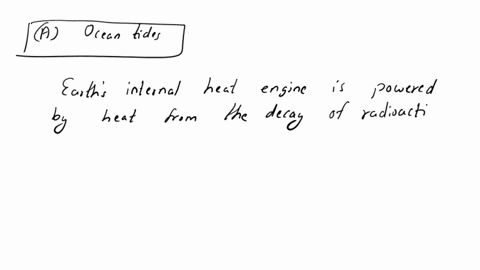 (A) Ocean tides
Earth's internal heat engine is powered
by heat from the decay of radioacti